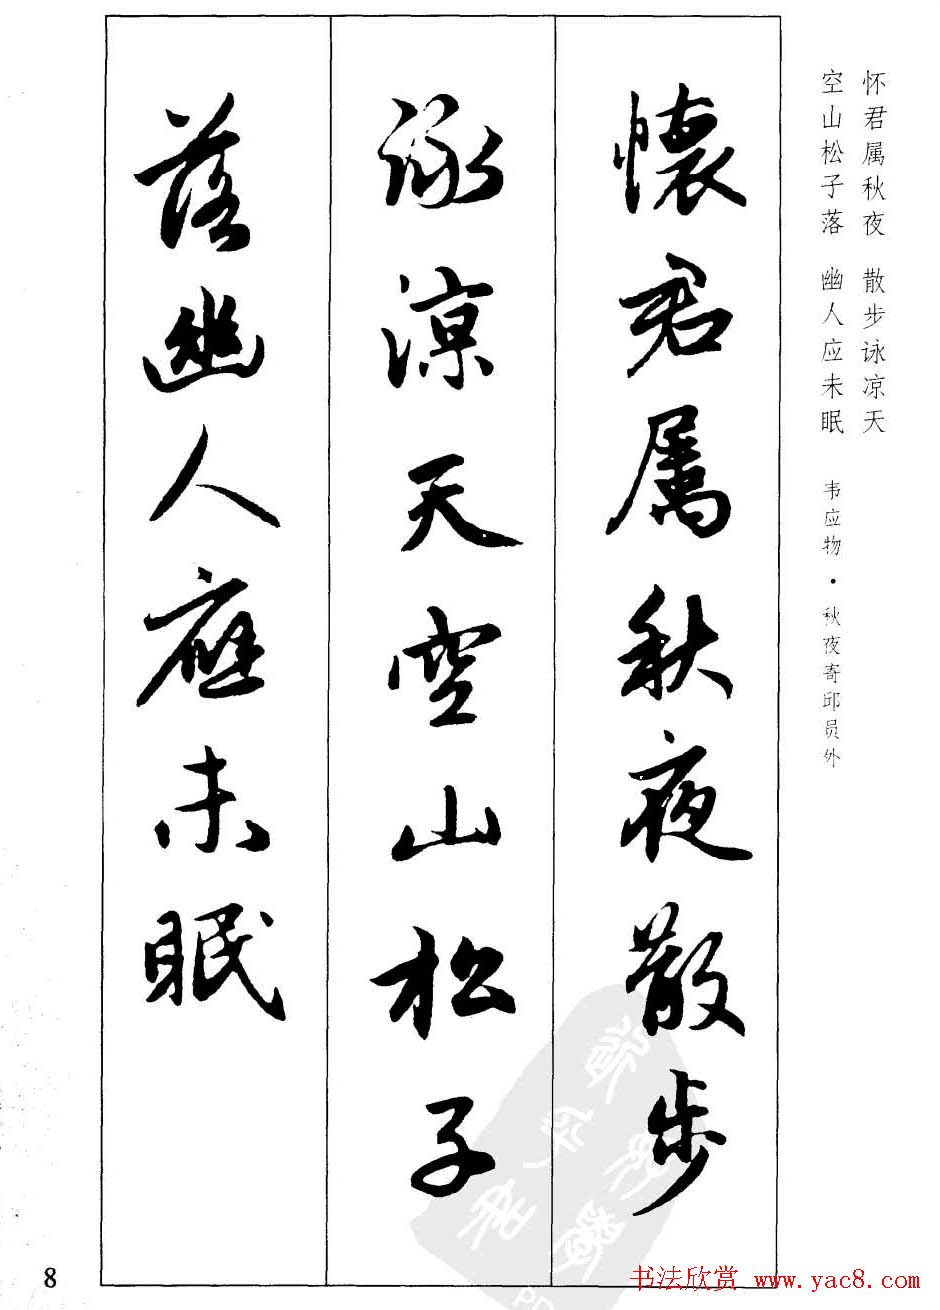 怀君属秋夜 散步咏凉天
空山松子落 幽人应未眠 韦应物·秋夜寄邱员外
懷君屬秋夜散步
詠涼天空山松子
落幽人應未眠
8
书法欣赏 www.yac8.com